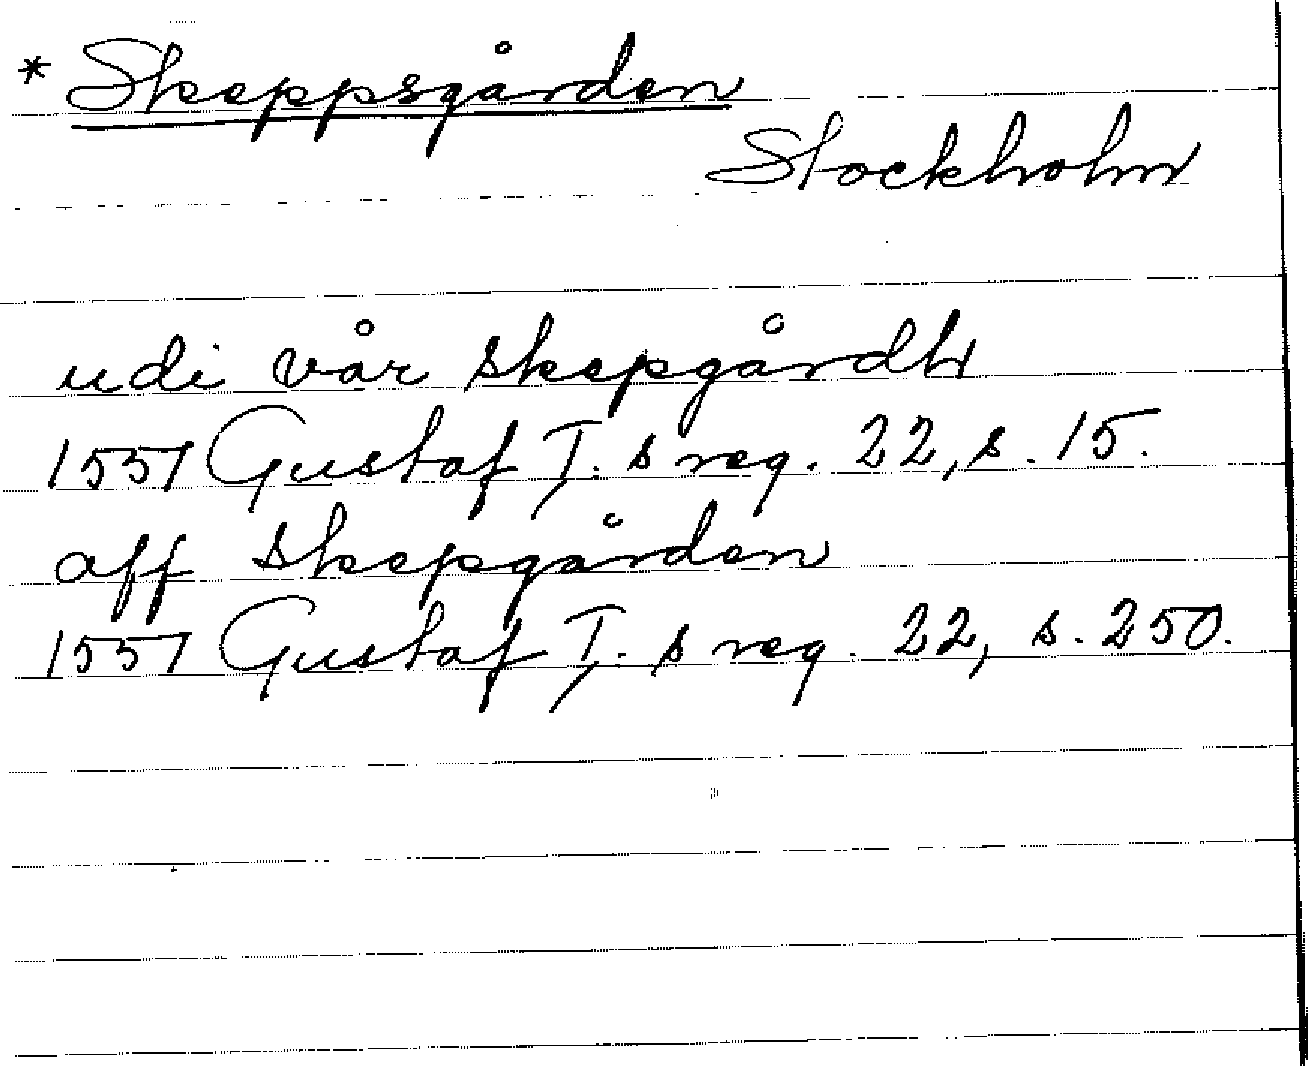 * Skeppsgården
Stockholm
udi vår skepgårdh
1557 Gustaf I. s reg. 22, s. 15.
aff skepgården
1557 Gustaf I. s reg. 22, s. 250.